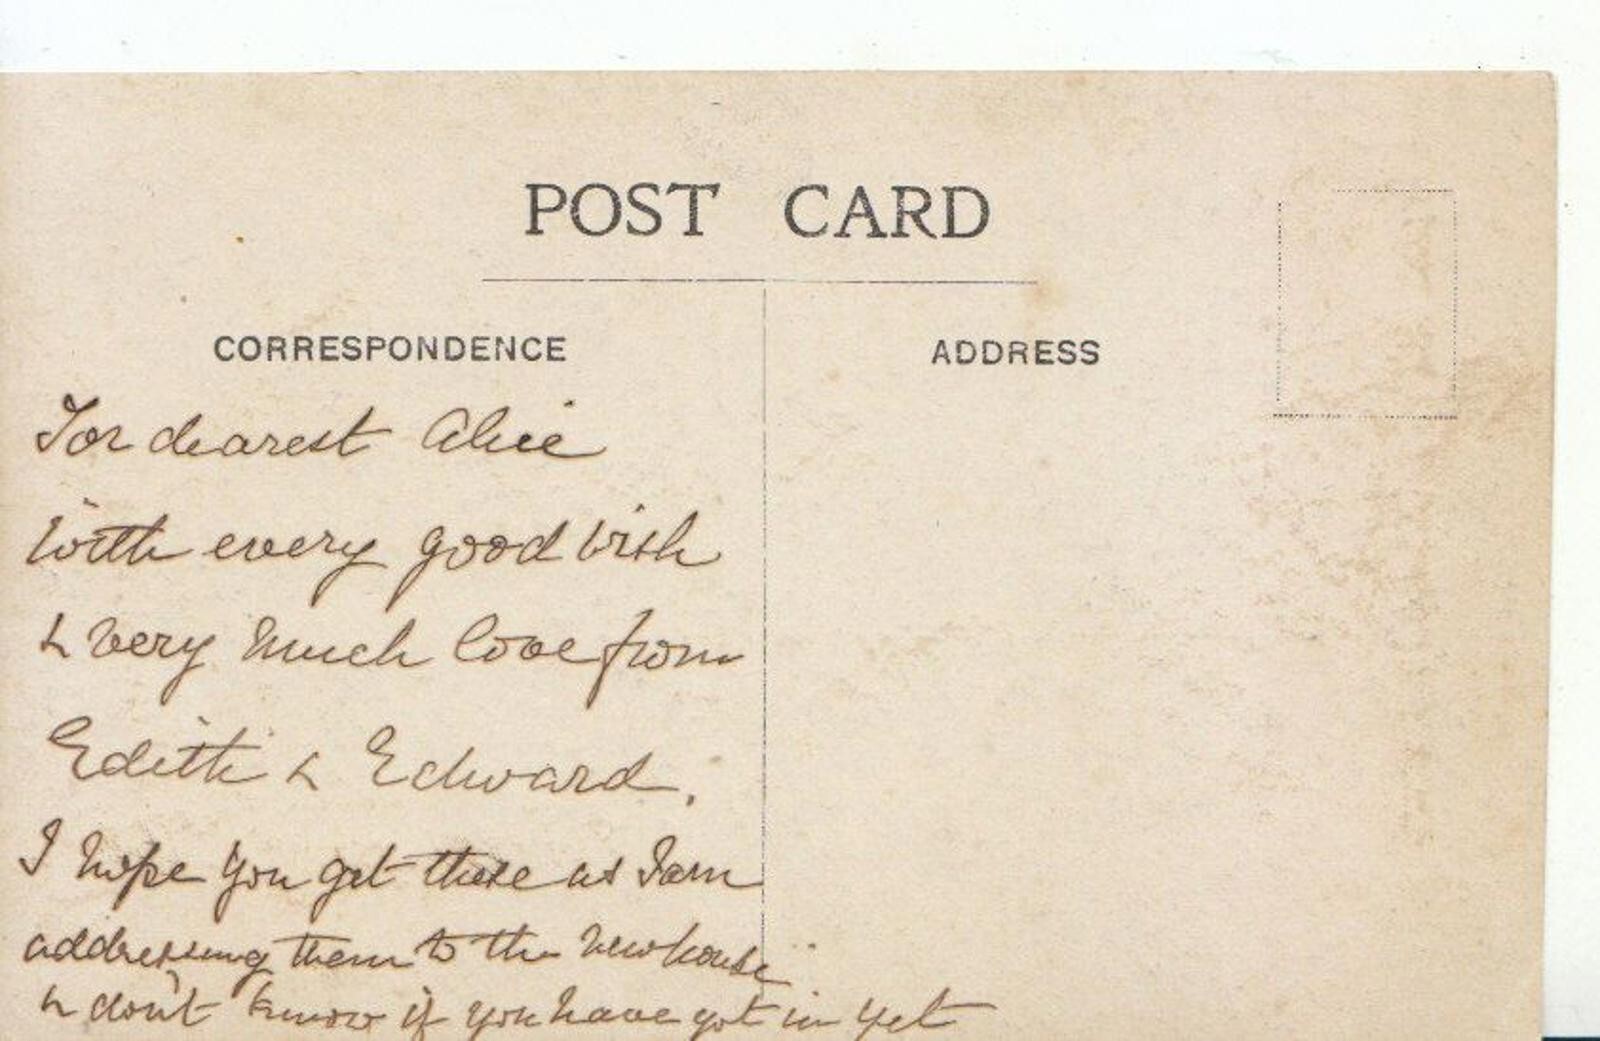 POST CARD
CORRESPONDENCE
ADDRESS
For dearest Alice
With every good wish
& very much love from
Edith & Edward.
I hope you get these as I am
addressing them to the new house
& don't know if you have got in yet